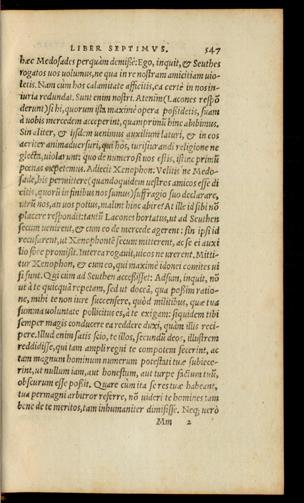 LIBER SEPTIMVS. 547
hæc Medosades perquàm demissè: Ego, inquit, & Seuthes
rogatos uos uolumus, ne qua in re nostram amicitiam uio-
letis. Nam cùm hos calamitate afficitis, ea certè in nos in-
iuria redundat. Sunt enim nostri. Atenim (Lacones respō
derunt) si hi, quorum ista maximè opera possidetis, suam
à uobis mercedem acceperint, quamprimū hinc abibimus.
Sin aliter, & ijsdem uenimus auxilium laturi, & in eos
acriter animaduersuri, qui hos, iurisiurandi religione ne
glecta, uiolarunt: quo de numero si uos estis, istinc primū
pœnas expetemus. Adiecit Xenophon: Velitis ne Medo-
sade, his permittere (quandoquidem uestros amicos esse di
citis, quorū in finibus nos sumus) suffragio suo declarare,
utrū nos, an uos potius, malint hinc abire? At ille id sibi nō
placere respondit: tantū Lacones hortatus, ut ad Seuthen
secum uenirent, & cum eo de mercede agerent: sin ipsi id
recusarent, ut Xenophontē secum mitterent, ac se ei auxi
lio fore promisit. Interea rogauit, uicos ne urerent. Mitti-
tur Xenophon, & cum eo, qui maximè idonei comites ui
si sunt. Qui cùm ad Seuthen accessisset: Adsum, inquit, nō
ut à te quicquā repetam, sed ut doceā, qua possim ratio-
ne, mihi te non iure succensere, quòd militibus, quæ tua
summa uoluntate pollicitus es, à te exigam: siquidem tibi
semper magis conducere ea reddere duxi, quàm illis reci-
pere. Illud enim satis scio, te illos, secundū deos, illustrem
reddidisse, qui tam ampli regni te compotem fecerint, ac
tam magnum hominum numerum potestati tuæ subiece-
rint, ut nullum iam, aut honestum, aut turpe factum tuū,
obscurum esse possit. Quare cùm ita se res tuæ habeant,
tua permagni arbitror referre, nō uideri te homines tam
bene de te meritos, tam inhumaniter dimisisse. Neq; uerò
Mm 2